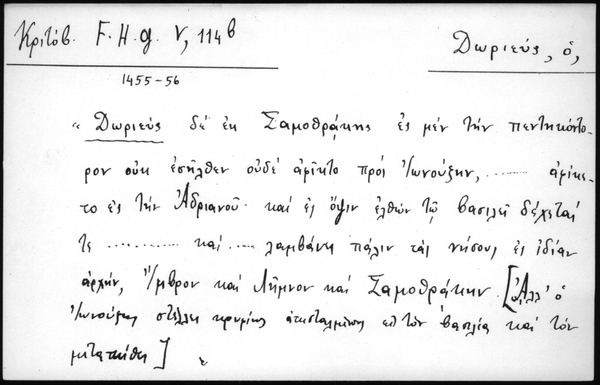 Κριτόβ. F.H.g. V, 114b
Δωριεύς, ὁ,
1455-56
"Δωριεύς δέ ἐκ Σαμοθρᾴκης ἐς μέν τήν πεντηκόντο-
ρον οὐκ ἐσῆλθεν οὐδέ ἀφῖκτο πρός Ἰωνούζην, ........ ἀφίκε-
το ἐς τήν Ἀδριανοῦ· καί ἐς ὄψιν ἐλθών τῷ βασιλεῖ δέχεται
τε ............ καί ..... λαμβάνει πάλιν τάς νήσους ἐς ἰδίαν
ἀρχήν, Ἴμβρον καί Λῆμνον καί Σαμοθρᾴκην [Ἀλλ' ὁ
Ἰωνούζης στέλλει κρυφίως ἐπὶ τόν βασιλέα καί τόν
μεταπείθει]